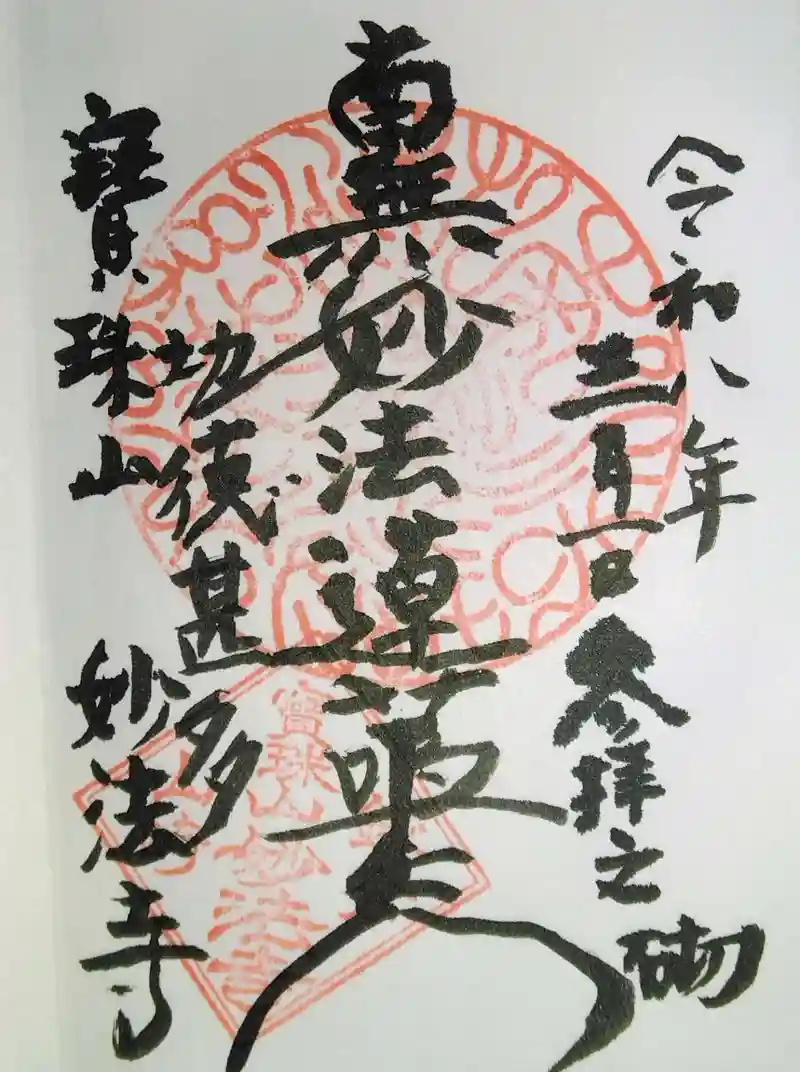 令和八年
三月一日
参拝之砌
南無妙法蓮華経
功徳甚多
寳珠山
妙法寺
寳珠山
妙法寺